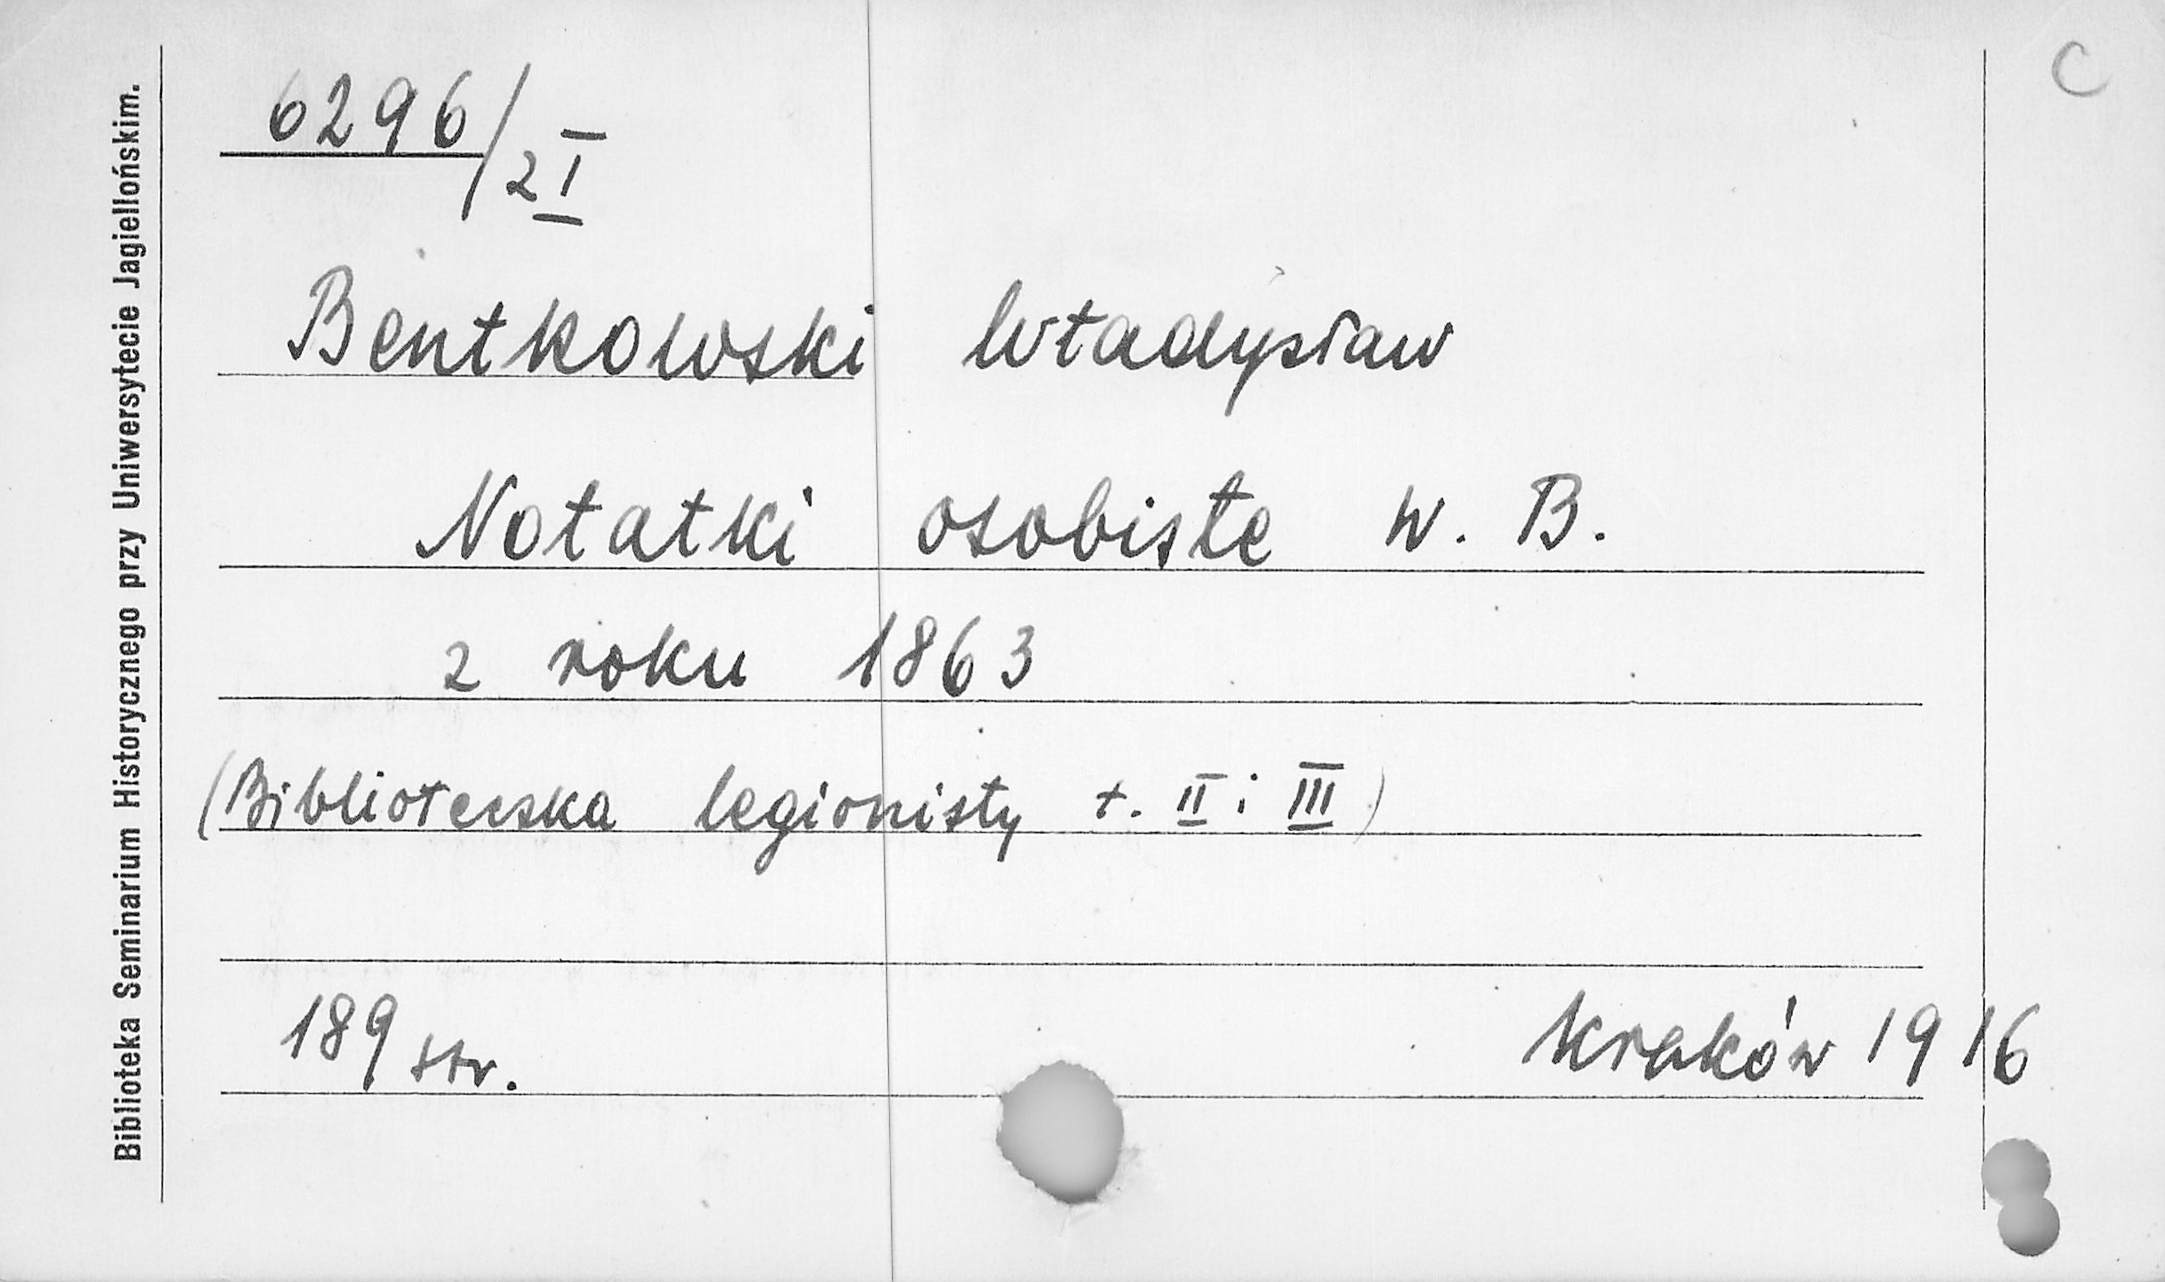 C
6296/2I
Bentkowski Władysław
Notatki osobiste W. B.
z roku 1863
(Biblioteczka legionisty t. II i III)
189 str. Kraków 1916
Biblioteka Seminarium Historycznego przy Uniwersytecie Jagiellońskim.